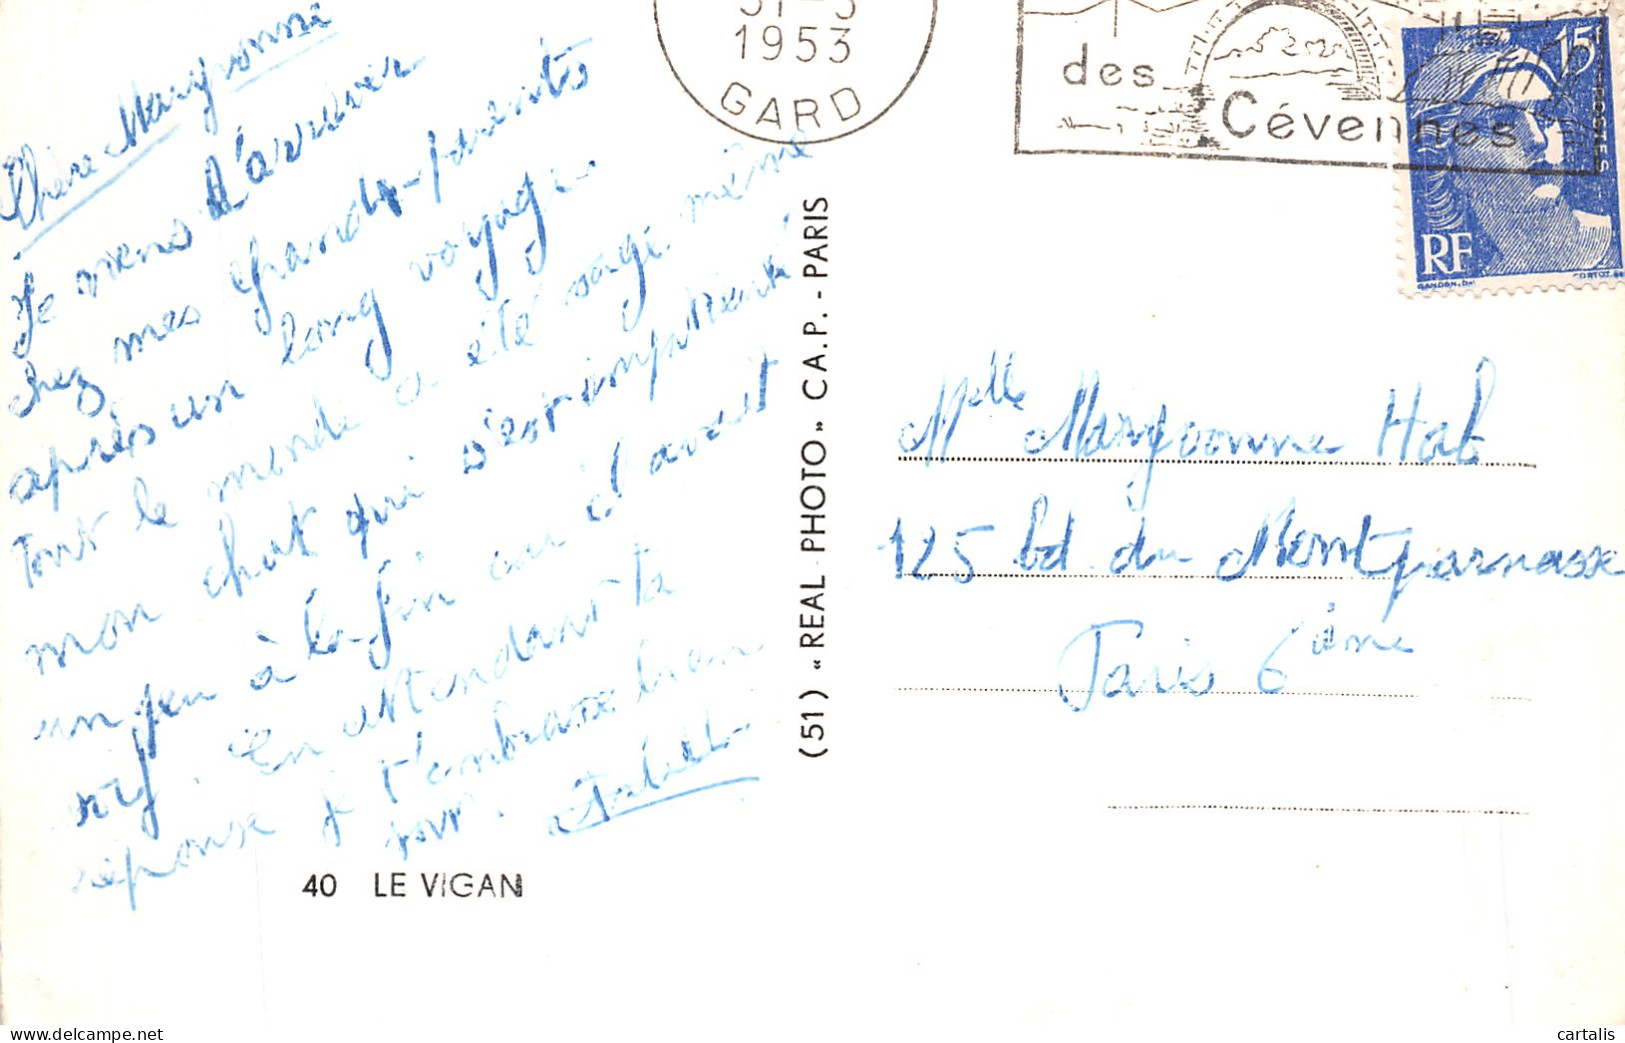 Chère Maryvonne
Je viens d'arriver
chez mes grands-parents
après un long voyage
Tout le monde a été sage même
mon chat qui s'est impatienté
un peu à la fin car il avait
soif. En attendant ta
réponse je t'embrasse bien
fort.
40 LE VIGAN
(51) «REAL PHOTO» C.A.P. - PARIS
1953
GARD
des
Cévennes
15F
POSTES
RF
GANDON. DEL
CORTOT. SC
Mlle Maryvonne Hab
125 bd. du Montparnasse
Paris 6ème
cartalis